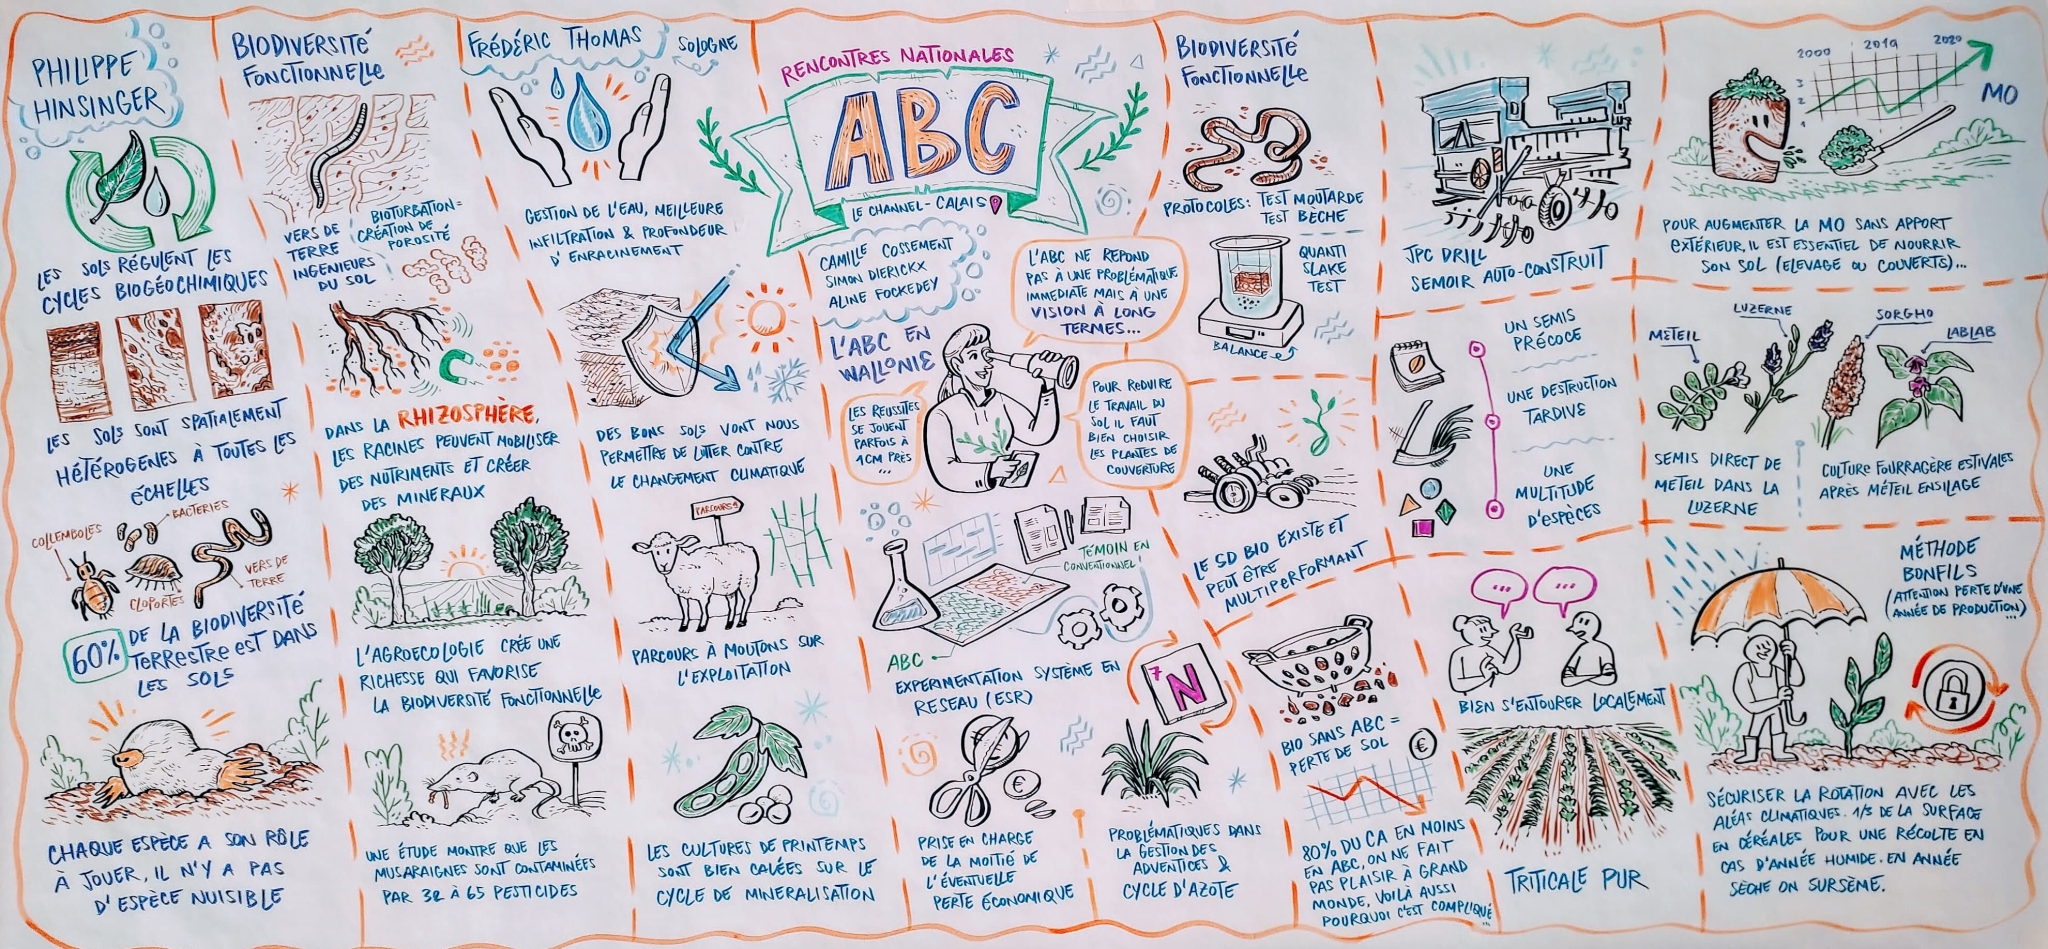 PHILIPPE
HINSINGER
LES SOLS RÉGULENT LES
CYCLES BIOGÉOCHIMIQUES
LES SOLS SONT SPATIALEMENT
HÉTÉROGÈNES À TOUTES LES
ÉCHELLES
COLLEMBOLES
BACTERIES
CLOPORTES
VERS DE
TERRE
60% DE LA BIODIVERSITÉ
TERRESTRE EST DANS
LES SOLS
CHAQUE ESPÈCE A SON RÔLE
À JOUER, IL N'Y A PAS
D'ESPÈCE NUISIBLE
BIODIVERSITÉ
FONCTIONNELLE
VERS DE
TERRE
INGENIEURS
DU SOL
BIOTURBATION =
CRÉATION DE
POROSITÉ
DANS LA RHIZOSPHÈRE,
LES RACINES PEUVENT MOBILISER
DES NUTRIMENTS ET CRÉER
DES MINERAUX
L'AGROECOLOGIE CRÉE UNE
RICHESSE QUI FAVORISE
LA BIODIVERSITÉ FONCTIONNELLE
UNE ÉTUDE MONTRE QUE LES
MUSARAIGNES SONT CONTAMINÉES
PAR 32 À 65 PESTICIDES
FRÉDÉRIC THOMAS
SOLOGNE
GESTION DE L'EAU, MEILLEURE
INFILTRATION & PROFONDEUR
D'ENRACINEMENT
DES BONS SOLS VONT NOUS
PERMETTRE DE LUTTER CONTRE
LE CHANGEMENT CLIMATIQUE
PARCOURS
PARCOURS À MOUTONS SUR
L'EXPLOITATION
LES CULTURES DE PRINTEMPS
SONT BIEN CALÉES SUR LE
CYCLE DE MINERALISATION
RENCONTRES NATIONALES
ABC
LE CHANNEL - CALAIS
CAMILLE COSSEMENT
SIMON DIERICKX
ALINE FOCKEDEY
L'ABC EN
WALLONIE
L'ABC NE REPOND
PAS À UNE PROBLÉMATIQUE
IMMEDIATE MAIS À UNE
VISION À LONG
TERMES...
LES REUSSITES
SE JOUENT
PARFOIS À
1CM PRÈS
...
POUR RÉDUIRE
LE TRAVAIL DU
SOL IL FAUT
BIEN CHOISIR
LES PLANTES DE
COUVERTURE
TÉMOIN EN
CONVENTIONNEL!
ABC
EXPERIMENTATION SYSTÈME EN
RESEAU (ESR)
€
PRISE EN CHARGE
DE LA MOITIÉ DE
L'ÉVENTUELLE
PERTE ÉCONOMIQUE
7
N
PROBLÉMATIQUES DANS
LA GESTION DES
ADVENTICES &
CYCLE D'AZOTE
BIODIVERSITÉ
FONCTIONNELLE
PROTOCOLES: TEST MOUTARDE
TEST BÈCHE
QUANTI
SLAKE
TEST
BALANCE
LE SD BIO EXISTE ET
PEUT ÊTRE
MULTIPERFORMANT
BIO SANS ABC =
PERTE DE SOL
€
80% DU CA EN MOINS
EN ABC, ON NE FAIT
PAS PLAISIR À GRAND
MONDE, VOILÀ AUSSI
POURQUOI C'EST COMPLIQUÉ
...
JPC DRILL
SEMOIR AUTO-CONSTRUIT
UN SEMIS
PRÉCOCE
UNE DESTRUCTION
TARDIVE
UNE
MULTITUDE
D'ESPÈCES
...
...
BIEN S'ENTOURER LOCALEMENT
TRITICALE PUR
2000
2010
2020
3
2
1
MO
POUR AUGMENTER LA MO SANS APPORT
EXTÉRIEUR, IL EST ESSENTIEL DE NOURRIR
SON SOL (ELEVAGE OU COUVERTS)...
METEIL
LUZERNE
SORGHO
LABLAB
SEMIS DIRECT DE
METEIL DANS LA
LUZERNE
CULTURE FOURRAGÈRE ESTIVALES
APRÈS MÉTEIL ENSILAGE
MÉTHODE
BONFILS
(ATTENTION PERTE D'UNE
ANNÉE DE PRODUCTION...)
SÉCURISER LA ROTATION AVEC LES
ALÉAS CLIMATIQUES. 1/5 DE LA SURFACE
EN CÉRÉALES POUR UNE RÉCOLTE EN
CAS D'ANNÉE HUMIDE. EN ANNÉE
SÈCHE ON SURSÈME.